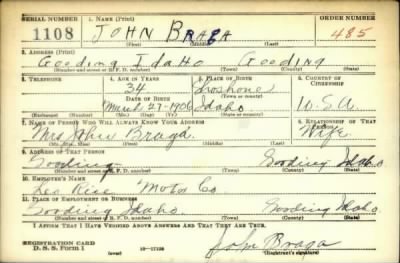 SERIAL NUMBER 1. NAME (Print) ORDER NUMBER
1108 JOHN BRAGA 485
(First) (Middle) (Last)
2. ADDRESS (Print)
Gooding Idaho Gooding
(Number and street or R. F. D. number) (Town) (County) (State)
3. TELEPHONE 4. AGE IN YEARS 5. PLACE OF BIRTH 6. COUNTRY OF CITIZENSHIP
34 Shoshone
DATE OF BIRTH (Town or county)
March-27-1906 Idaho U.S.A
(Exchange) (Number) (Mo.) (Day) (Yr.) (State or country)
7. NAME OF PERSON WHO WILL ALWAYS KNOW YOUR ADDRESS 8. RELATIONSHIP OF THAT PERSON
Mrs John Braga Wife
(Mr., Mrs., Miss) (First) (Middle) (Last)
9. ADDRESS OF THAT PERSON
Gooding Gooding Idaho
(Number and street or R. F. D. number) (Town) (County) (State)
10. EMPLOYER'S NAME
Leo Rice Motor Co
11. PLACE OF EMPLOYMENT OR BUSINESS
Gooding Idaho. Gooding Idaho.
(Number and street or R. F. D. number) (Town) (County) (State)
I AFFIRM THAT I HAVE VERIFIED ABOVE ANSWERS AND THAT THEY ARE TRUE.
REGISTRATION CARD
D. S. S. Form 1 (over) 16—17105 John Braga
(Registrant's signature)